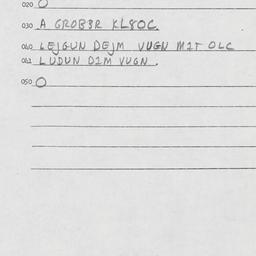 020 O
030 A GROB8R KL8OC.
040 LEJGUN DEJM VUGN M2T OLC
041 LUDUN D2M VUGN.
050 O